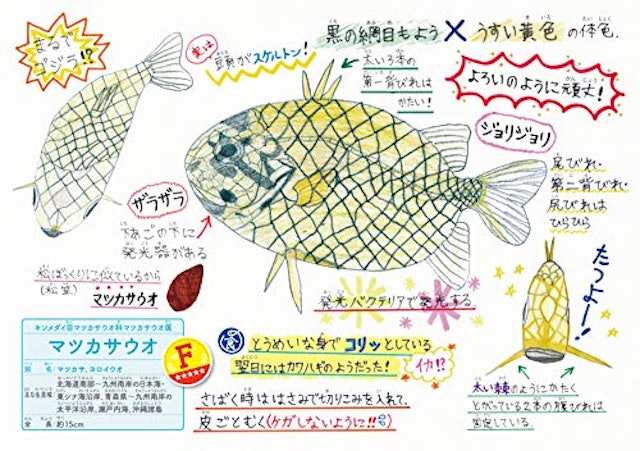 まるで
ゴジラ!?
実は
頭がスケルトン!
黒の網目もよう×うすい黄色の体色.
太い3本の
第一背びれは
かたい!
よろいのように頑丈!
ジョリジョリ
尾びれ・
第二背びれ・
尻びれは
ひらひら
ザラザラ
下あごの下に
発光器がある
松ぼっくりに似ているから
(松笠)
マツカサウオ
発光バクテリアで発光する.
たつよー!
キンメダイ目マツカサウオ科マツカサウオ属
マツカサウオ
別名 マツカサ、ヨロイウオ
主な生息域 北海道南部〜九州南岸の日本海・
東シナ海沿岸、青森県〜九州南岸の
太平洋沿岸、瀬戸内海、沖縄諸島
全長 約15cm
F
★★★★★
食
とうめいな身でコリッとしている
翌日にはカワハギのようだった!
イカ!?
さばく時ははさみで切りこみを入れて、
皮ごとむく(ケガしないように!!)
太い棘のようにかたく
とがっている2本の腹びれは
固定している.